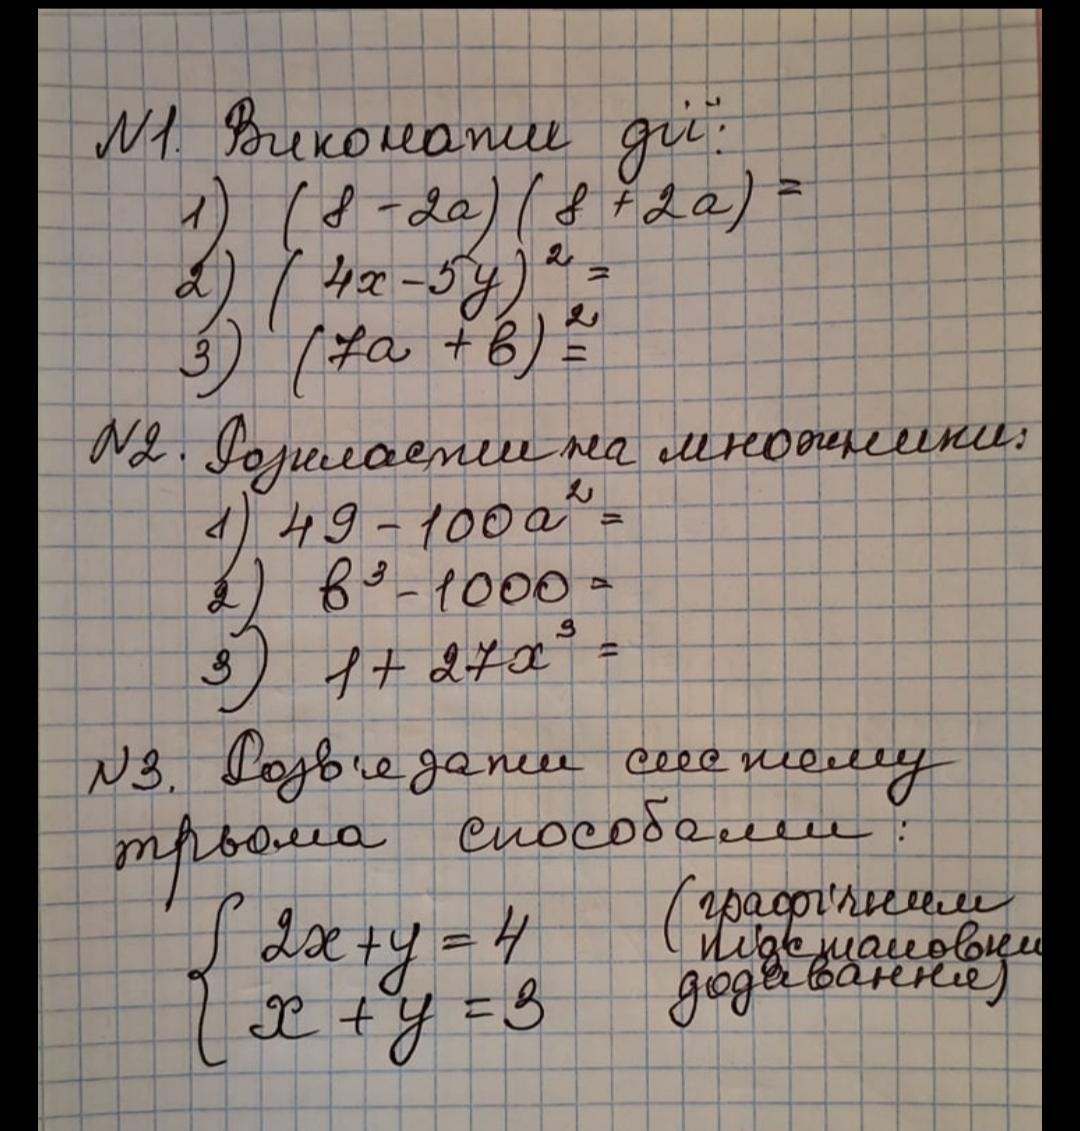 N1. Виконати дії:
1) (8 - 2a)(8 + 2a) =
2) (4x - 5y)² =
3) (7a + b)² =
N2. Розкласти на множники:
1) 49 - 100a² =
2) b³ - 1000 =
3) 1 + 27x³ =
N3. Розв'язати систему
трьома способами:
{ 2x + y = 4
x + y = 3
(графічним
підстановки
додавання)